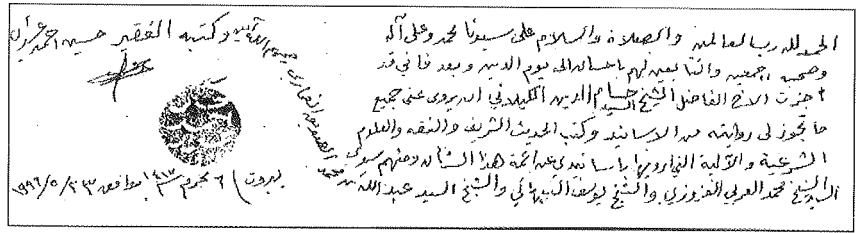 الحمد لله رب العالمين والصلاة والسلام على سيدنا محمد وعلى آله
وصحبه أجمعين والتابعين لهم باحسان الى يوم الدين وبعد فاني قد
اجزت الاخ الفاضل الشيخ السيد حسام الدين الكيلاني ان يروي عني جميع
ما تجوز لي روايته من الاسانيد وكتب الحديث الشريف والفقه والعلوم
الشرعية والآلية التي ارويها باسانيدي عن ائمة هذا الشأن ومنهم سيدي
السيد الشيخ محمد العربي العزوزي والشيخ يوسف النبهاني والشيخ السيد عبد الله
بن محمد الصديق الغماري رحمهم الله
وكتبه الفقير حسين احمد عسيران
بيروت ٦ محرم ١٤١٧ موافق ٢٣/٥/١٩٩٦